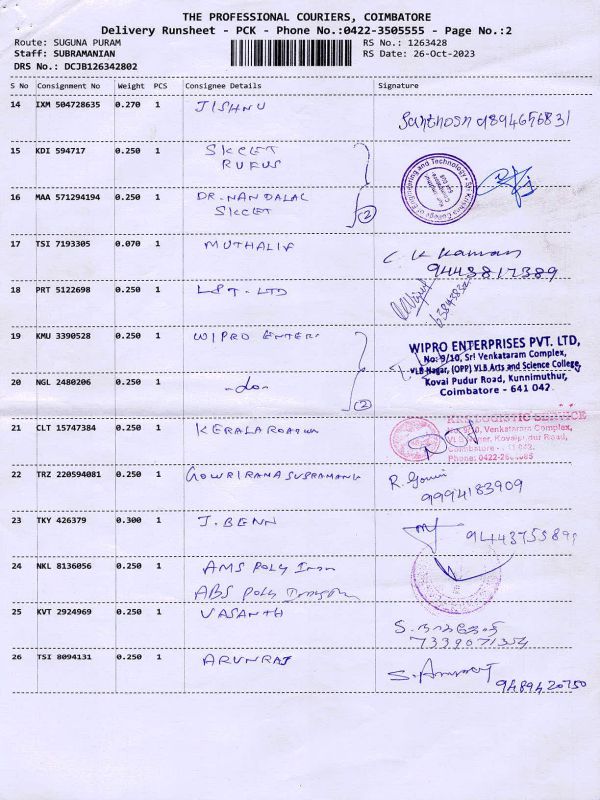 THE PROFESSIONAL COURIERS, COIMBATORE
Delivery Runsheet - PCK - Phone No.:0422-3505555 - Page No.:2
Route: SUGUNA PURAM
RS No.: 1263428
Staff: SUBRAMANIAN
RS Date: 26-Oct-2023
DRS No.: DCJB126342802
S No Consignment No Weight PCS Consignee Details Signature
14 IXM 504728635 0.270 1 JISHNU
Santhosh 9894656831
15 KDI 594717 0.250 1 SKCET
RUFUS
16 MAA 571294194 0.250 1 DR. NANDALAL
SKCET
2
Sri Krishna College of Engineering and Technology
17 TSI 7193305 0.070 1 MUTHALIF
C K Raman
9443817389
18 PRT 5122698 0.250 1 LPT. LTD
19 KMU 3390528 0.250 1 WIPRO ENTER.
20 NGL 2480206 0.250 1 -do-
2
WIPRO ENTERPRISES PVT. LTD,
No: 9/10, Sri Venkataram Complex,
VLB Nagar, (OPP) VLB Arts and Science College,
Kovai Pudur Road, Kunnimuthur,
Coimbatore - 641 042.
21 CLT 15747384 0.250 1 KERALA
LOGISTIC SERVICE
9/10, Venkataram Complex,
VLB Nager, Kovaipudur Road,
Coimbatore - 641 042.
Phone: 0422-
22 TRZ 220594081 0.250 1 GOWRIRAMASUBRAMANI
R. Gowri
9994183909
23 TKY 426379 0.300 1 J. BENN
24 NKL 8136056 0.250 1 AMS POLY
ABS POLY
25 KVT 2924969 0.250 1 VASANTH
7339071354
26 TSI 8094131 0.250 1 ARUNRAJ
S. Arunraj
9489420750